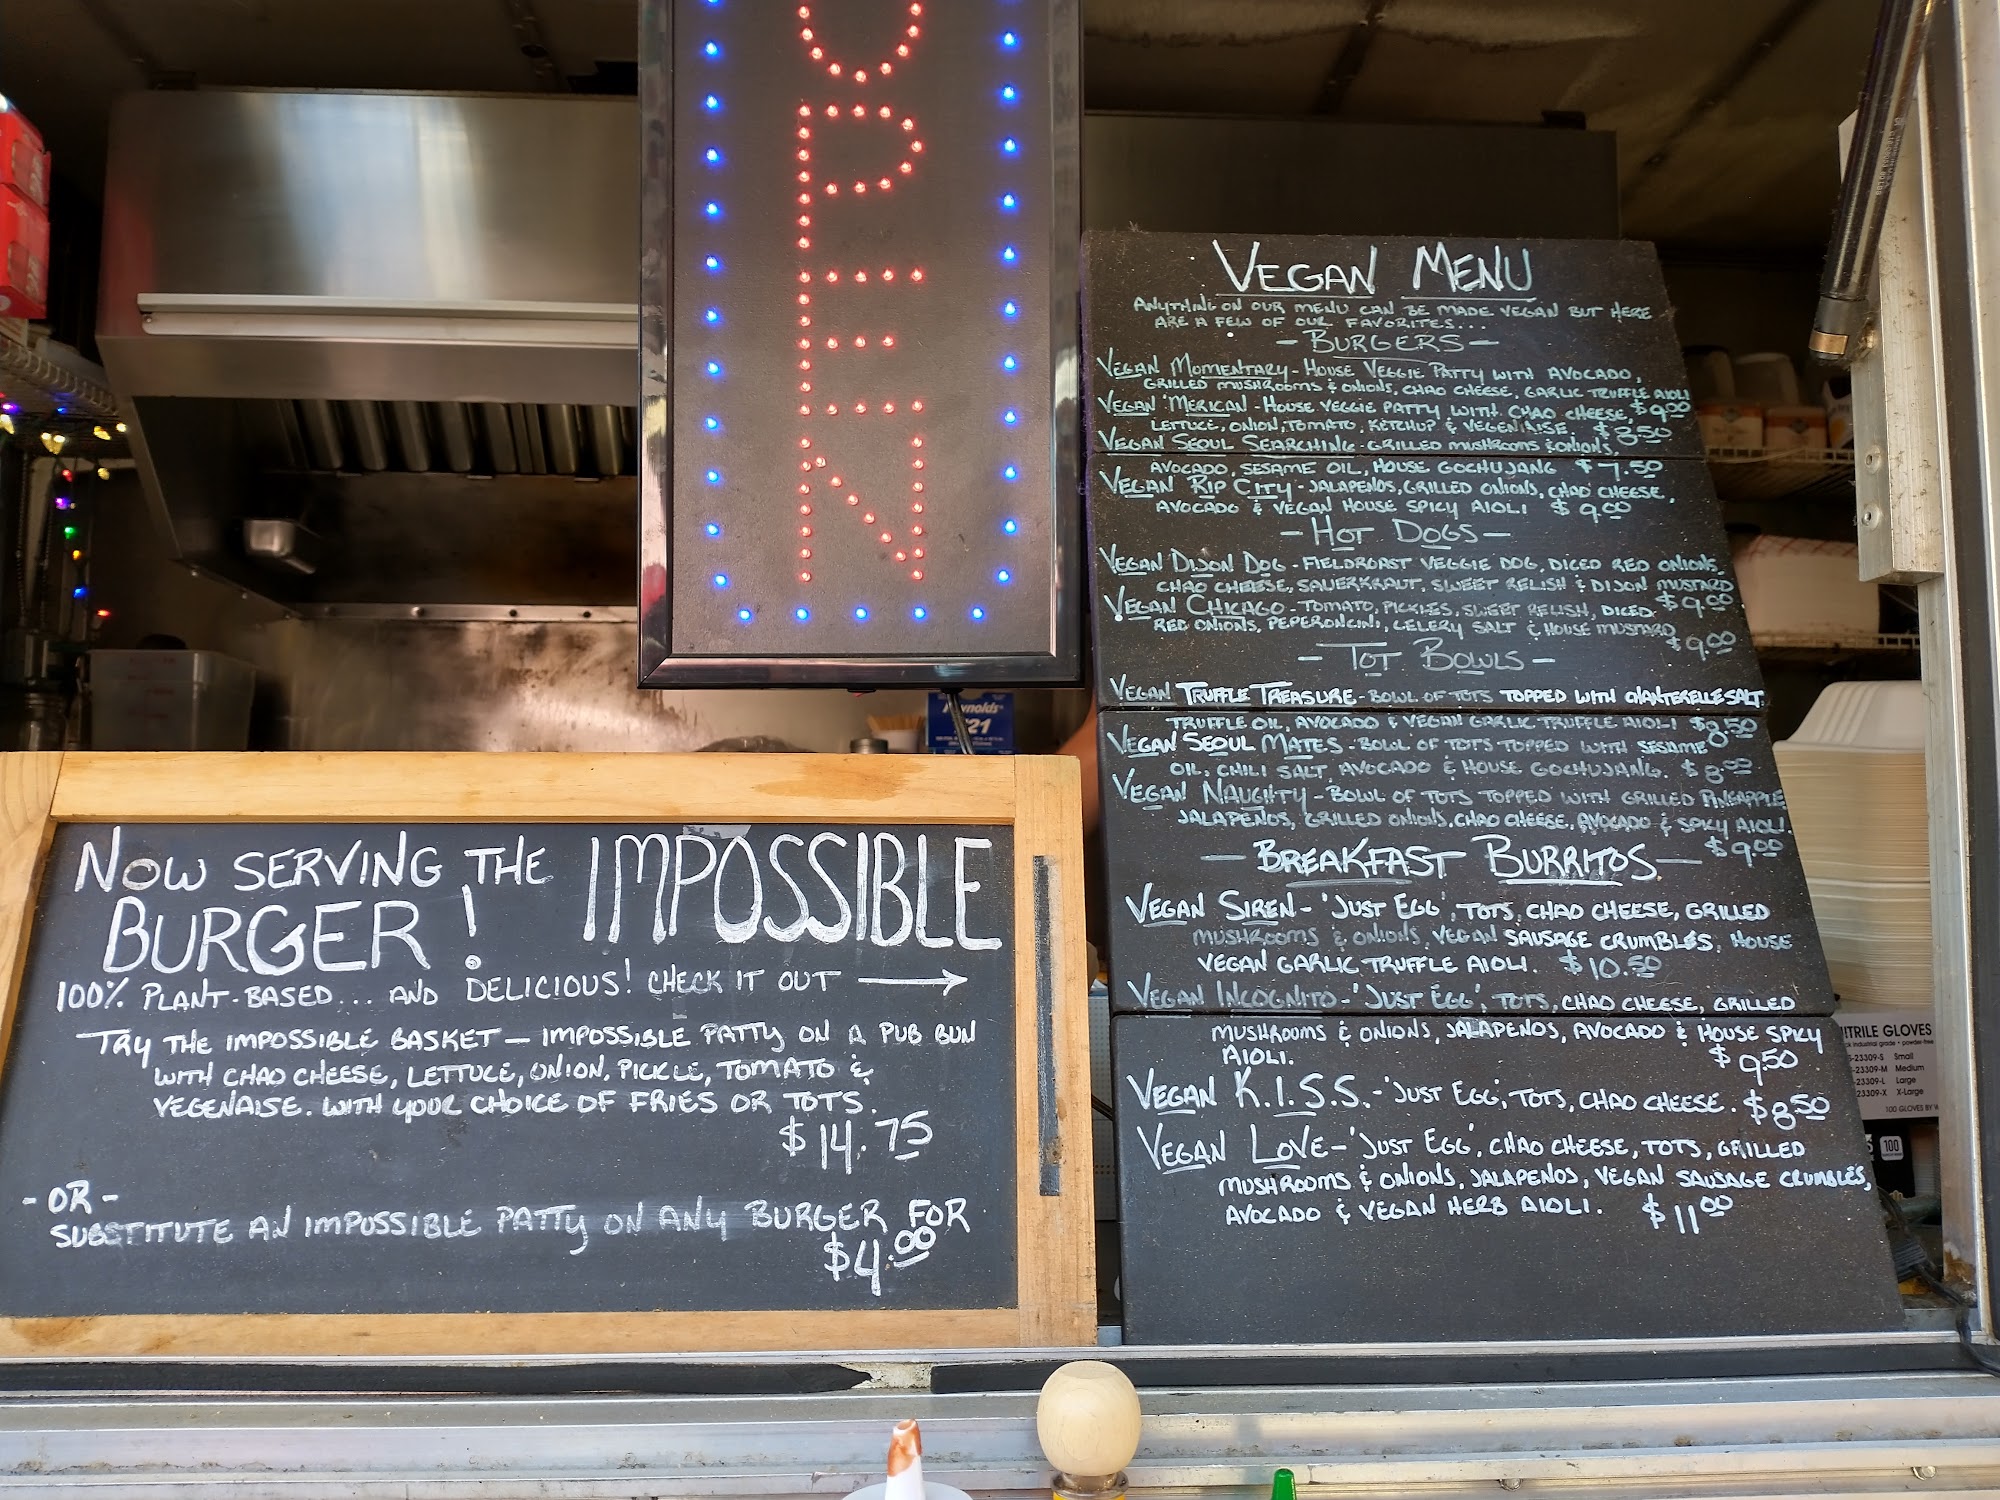 OPEN
VEGAN MENU
ANYTHING ON OUR MENU CAN BE MADE VEGAN BUT HERE
ARE A FEW OF OUR FAVORITES...
- BURGERS -
VEGAN MOMENTARY - HOUSE VEGGIE PATTY WITH AVOCADO,
GRILLED MUSHROOMS & ONIONS, CHAO CHEESE, GARLIC TRUFFLE AIOLI
$9.00
VEGAN 'MERICAN - HOUSE VEGGIE PATTY WITH CHAO CHEESE,
LETTUCE, ONION, TOMATO, KETCHUP & VEGENAISE. $8.50
VEGAN SEOUL SEARCHING - GRILLED MUSHROOMS & ONIONS,
AVOCADO, SESAME OIL, HOUSE GOCHUJANG $7.50
VEGAN RIP CITY - JALAPENOS, GRILLED ONIONS, CHAO CHEESE,
AVOCADO & VEGAN HOUSE SPICY AIOLI $9.00
- HOT DOGS -
VEGAN DIJON DOG - FIELDROAST VEGGIE DOG, DICED RED ONIONS,
CHAO CHEESE, SAUERKRAUT, SWEET RELISH & DIJON MUSTARD
$9.00
VEGAN CHICAGO - TOMATO, PICKLES, SWEET RELISH, DICED
RED ONIONS, PEPERONCINI, CELERY SALT & HOUSE MUSTARD
$9.00
- TOT BOWLS -
VEGAN TRUFFLE TREASURE - BOWL OF TOTS TOPPED WITH CHANTERELLE SALT,
TRUFFLE OIL, AVOCADO & VEGAN GARLIC TRUFFLE AIOLI $8.50
VEGAN SEOUL MATES - BOWL OF TOTS TOPPED WITH SESAME
OIL, CHILI SALT, AVOCADO & HOUSE GOCHUJANG. $8.00
VEGAN NAUGHTY - BOWL OF TOTS TOPPED WITH GRILLED PINEAPPLE
JALAPENOS, GRILLED ONIONS, CHAO CHEESE, AVOCADO & SPICY AIOLI.
$9.00
- BREAKFAST BURRITOS -
VEGAN SIREN - 'JUST EGG', TOTS, CHAO CHEESE, GRILLED
MUSHROOMS & ONIONS, VEGAN SAUSAGE CRUMBLES, HOUSE
VEGAN GARLIC TRUFFLE AIOLI. $10.50
VEGAN INCOGNITO - 'JUST EGG', TOTS, CHAO CHEESE, GRILLED
MUSHROOMS & ONIONS, JALAPENOS, AVOCADO & HOUSE SPICY
AIOLI. $9.50
VEGAN K.I.S.S. - 'JUST EGG', TOTS, CHAO CHEESE. $8.50
VEGAN LOVE - 'JUST EGG', CHAO CHEESE, TOTS, GRILLED
MUSHROOMS & ONIONS, JALAPENOS, VEGAN SAUSAGE CRUMBLES,
AVOCADO & VEGAN HERB AIOLI. $11.00
Reynolds
721
NOW SERVING THE IMPOSSIBLE
BURGER!
100% PLANT-BASED... AND DELICIOUS! CHECK IT OUT →
TRY THE IMPOSSIBLE BASKET - IMPOSSIBLE PATTY ON A PUB BUN
WITH CHAO CHEESE, LETTUCE, ONION, PICKLE, TOMATO &
VEGENAISE. WITH YOUR CHOICE OF FRIES OR TOTS.
$14.75
- OR -
SUBSTITUTE AN IMPOSSIBLE PATTY ON ANY BURGER FOR
$4.00
NITRILE GLOVES
23309-S Small
23309-M Medium
23309-L Large
23309-X X-Large
100 GLOVES BY
100